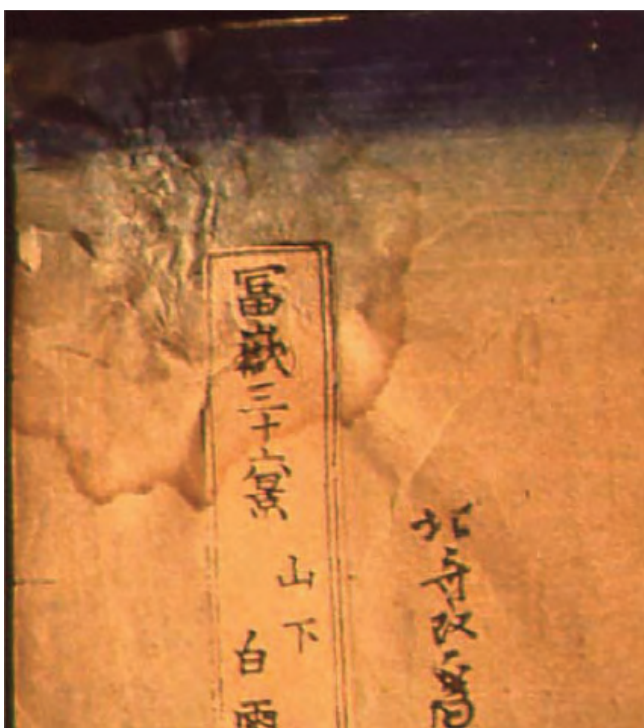 冨嶽三十六景
山下
白雨
北斎改為